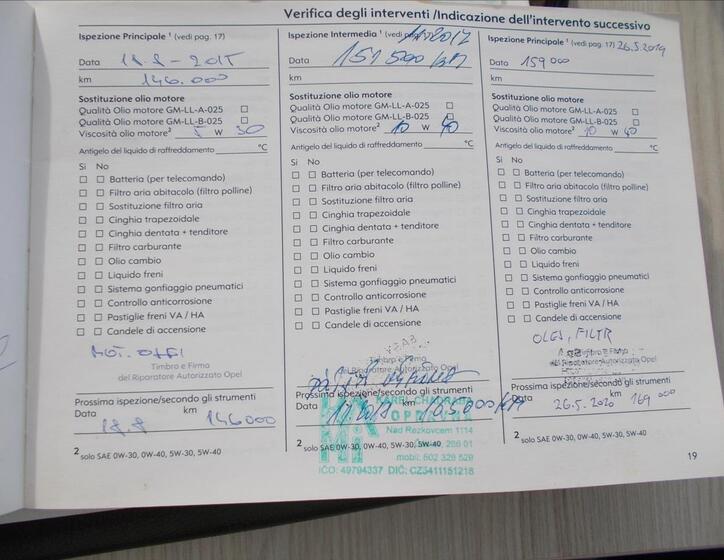 Verifica degli interventi /Indicazione dell'intervento successivo
Ispezione Principale ¹ (vedi pag. 17)
Data 18.8 - 2015
km 146.000
Sostituzione olio motore
Qualità Olio motore GM-LL-A-025
Qualità Olio motore GM-LL-B-025
Viscosità olio motore² 5 W 30
Antigelo del liquido di raffreddamento °C
Si No
Batteria (per telecomando)
Filtro aria abitacolo (filtro polline)
Sostituzione filtro aria
Cinghia trapezoidale
Cinghia dentata + tenditore
Filtro carburante
Olio cambio
Liquido freni
Sistema gonfiaggio pneumatici
Controllo anticorrosione
Pastiglie freni VA / HA
Candele di accensione
MOT.
Timbro e Firma
del Riparatore Autorizzato Opel
Prossima ispezione/secondo gli strumenti
Data km
18.8 146000
² solo SAE 0W-30, 0W-40, 5W-30, 5W-40
Ispezione Intermedia ¹ (vedi pag. 17)
Data 151 500 km
km
Sostituzione olio motore
Qualità Olio motore GM-LL-A-025
Qualità Olio motore GM-LL-B-025
Viscosità olio motore² 10 W 40
Antigelo del liquido di raffreddamento °C
Si No
Batteria (per telecomando)
Filtro aria abitacolo (filtro polline)
Sostituzione filtro aria
Cinghia trapezoidale
Cinghia dentata + tenditore
Filtro carburante
Olio cambio
Liquido freni
Sistema gonfiaggio pneumatici
Controllo anticorrosione
Pastiglie freni VA / HA
Candele di accensione
Timbro e Firma
del Riparatore Autorizzato Opel
Prossima ispezione/secondo gli strumenti
Data km
KAREL
Nad Rezkovcem 1114
mobil: 602 328 529
IČO: 49794337 DIČ: CZ5411151218
² solo SAE 0W-30, 0W-40, 5W-30, 5W-40
Ispezione Principale ¹ (vedi pag. 17) 26.5.2019
Data 159 000
km
Sostituzione olio motore
Qualità Olio motore GM-LL-A-025
Qualità Olio motore GM-LL-B-025
Viscosità olio motore² 10 W 40
Antigelo del liquido di raffreddamento °C
Si No
Batteria (per telecomando)
Filtro aria abitacolo (filtro polline)
Sostituzione filtro aria
Cinghia trapezoidale
Cinghia dentata + tenditore
Filtro carburante
Olio cambio
Liquido freni
Sistema gonfiaggio pneumatici
Controllo anticorrosione
Pastiglie freni VA / HA
Candele di accensione
OLEJ, FILTR
Timbro e Firma
del Riparatore Autorizzato Opel
Prossima ispezione/secondo gli strumenti
Data 26.5.2020 km 169 000
² solo SAE 0W-30, 0W-40, 5W-30, 5W-40
19